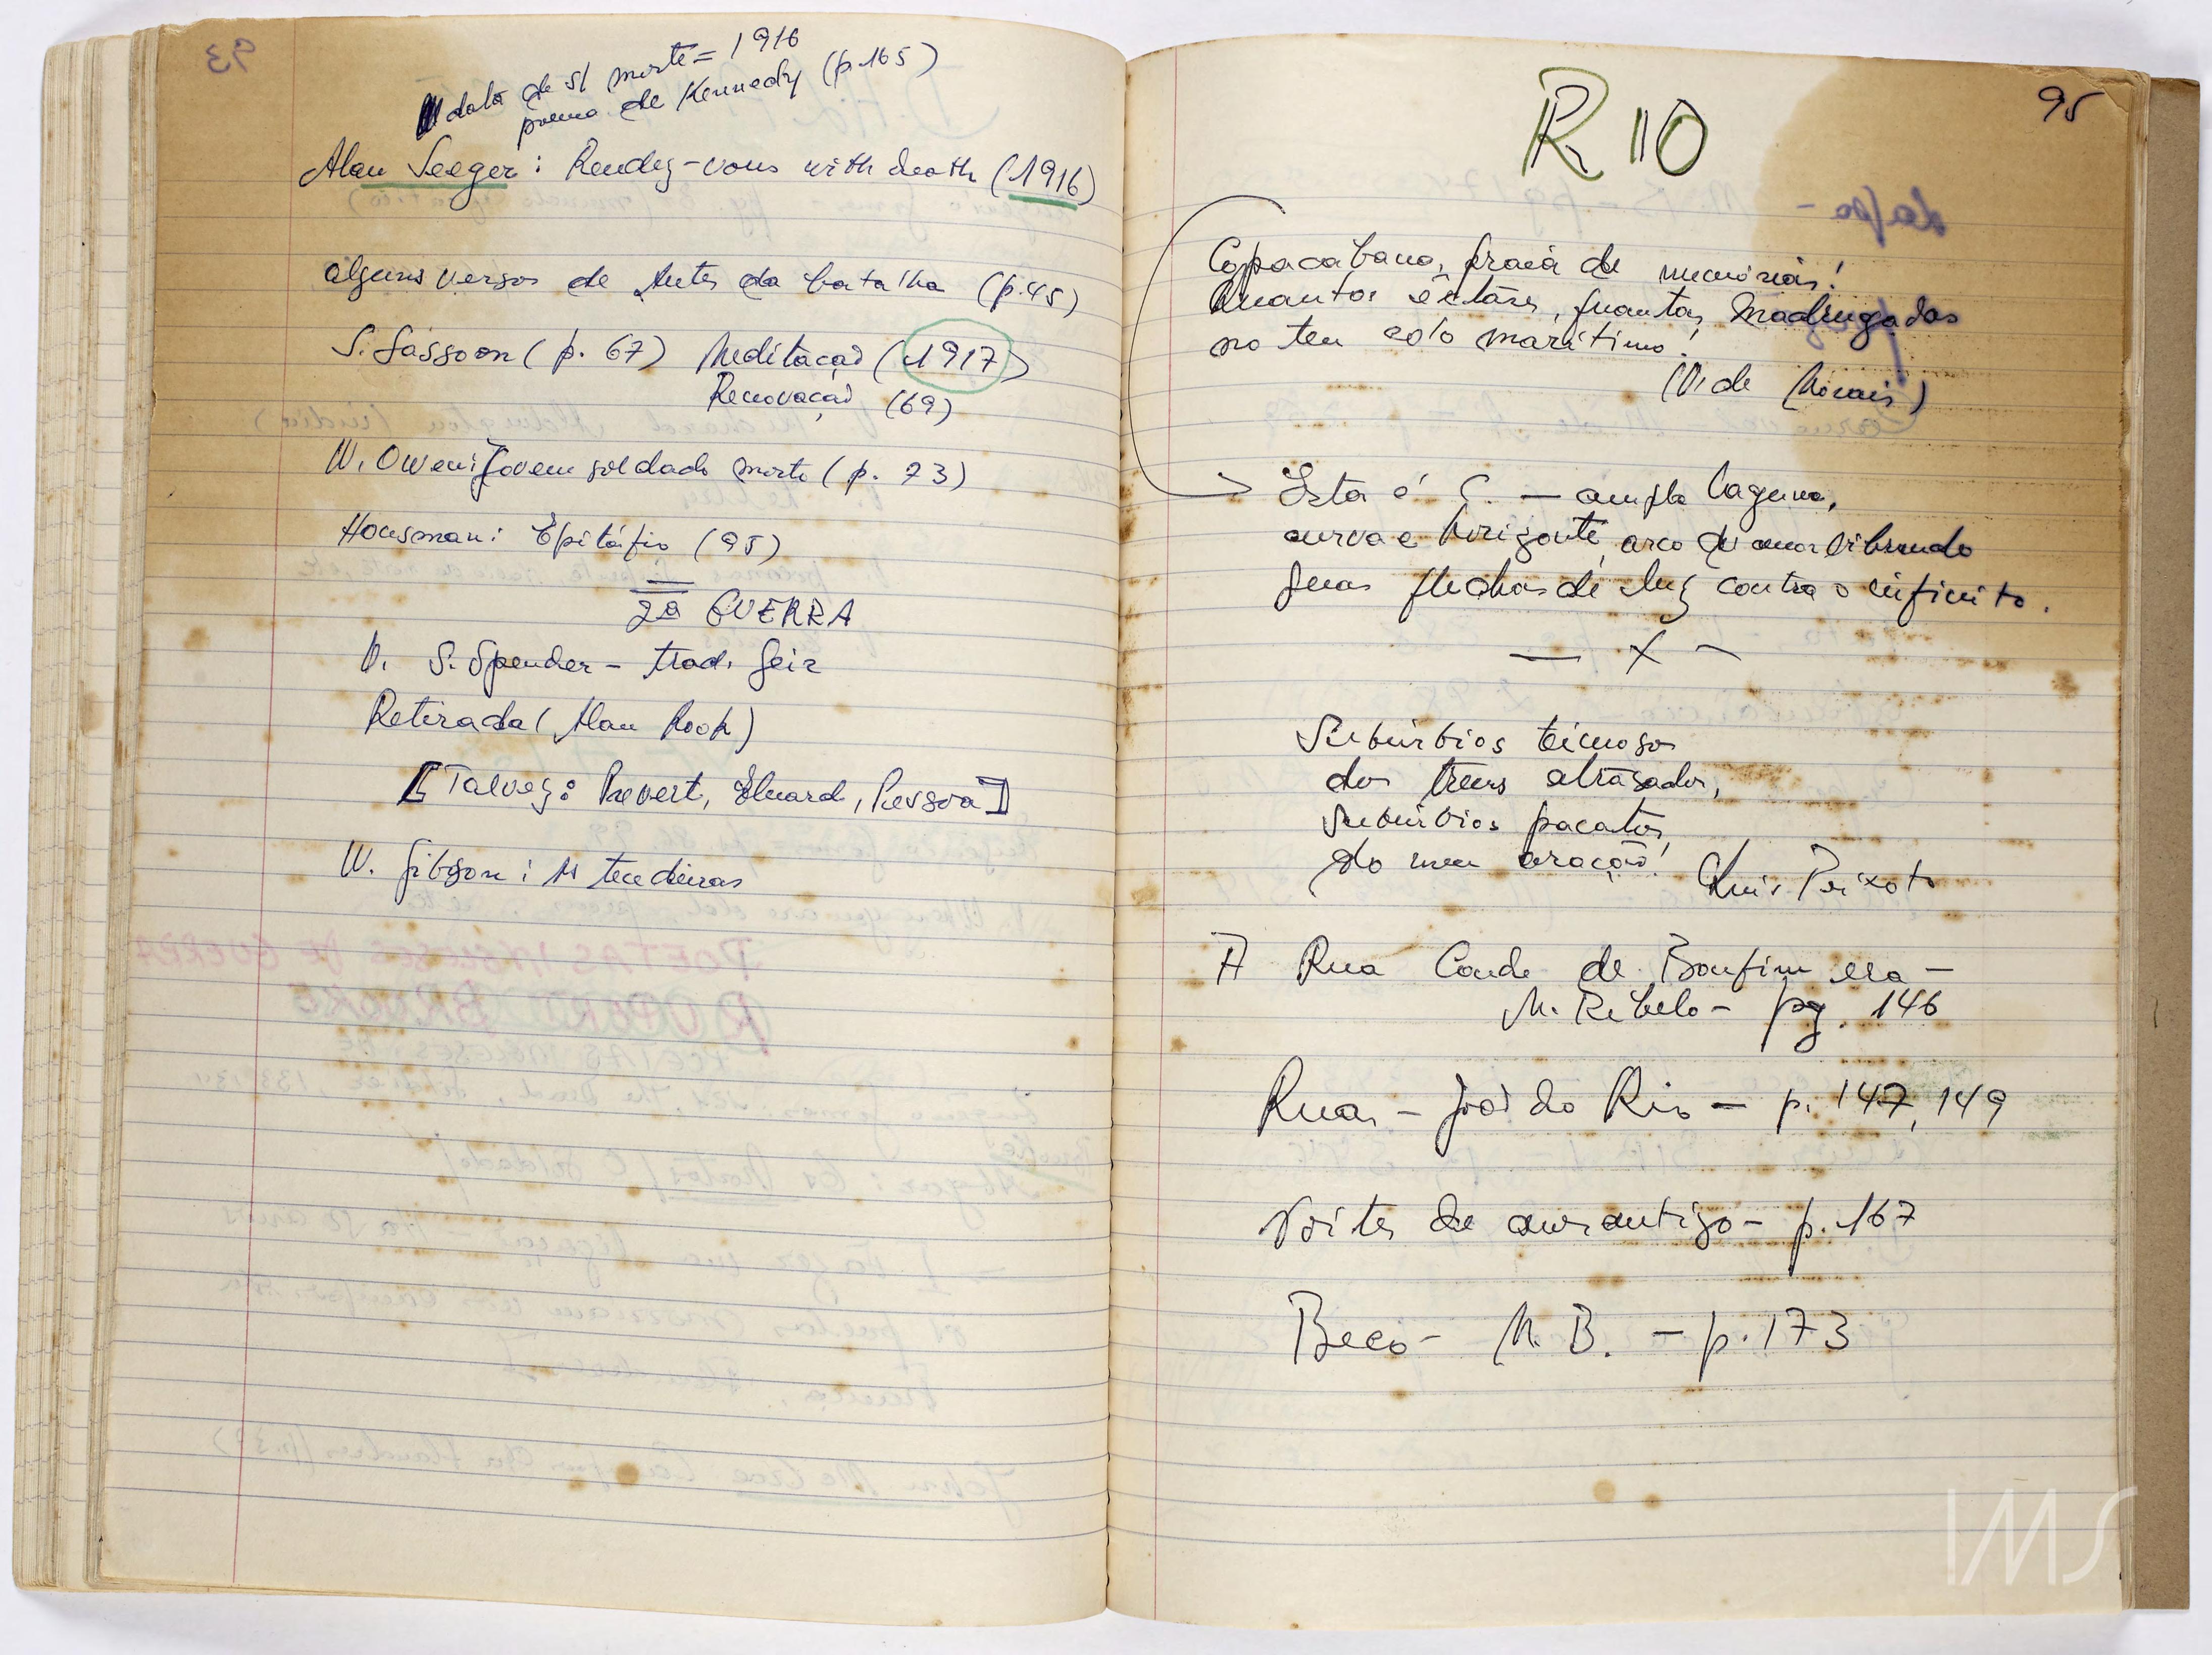 data de s/ morte = 1916
poema de Kennedy (p.165)
Alan Seeger: Rendez-vous with death (1916)
alguns versos de Antes da batalha (p.45)
S. Sassoon (p. 67) Meditação (1917)
Renovação (69)
W. Owen: Jovem soldado morto (p. 73)
Housman: Epitáfio (95)
2ª GUERRA
V. S. Spender - trad. Geir
Retirada (Alan Rook)
[Talvez: Prevert, Eluard, Pessoa]
W. Gibson: As tecedeiras
95
RIO
Copacabana, praia de memórias!
Quantos êxtases, quantas madrugadas
no teu colo marítimo!
(V. de Morais)
Esta é C. — ampla laguna,
curva e horizonte, arco de amor vibrando
suas flechas de luz contra o infinito.
— x —
Subúrbios
dos trens atrasados,
subúrbios pacatos
do meu coração! Luis Peixoto
A Rua Conde de Bonfim era —
M. Rebelo - pg. 146
Ruas - João do Rio - p. 147, 149
Noites de antigo - p. 167
Beco - M. B. - p. 173
93
IMS